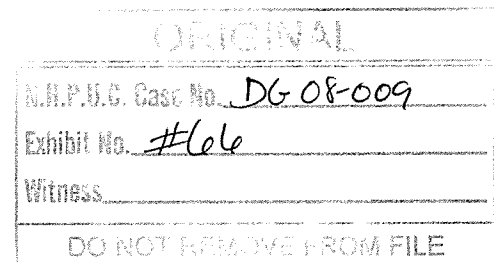 ORIGINAL
N.H.P.U.C. Case No. DG 08-009
Exhibit No. #66
Witness
DO NOT REMOVE FROM FILE